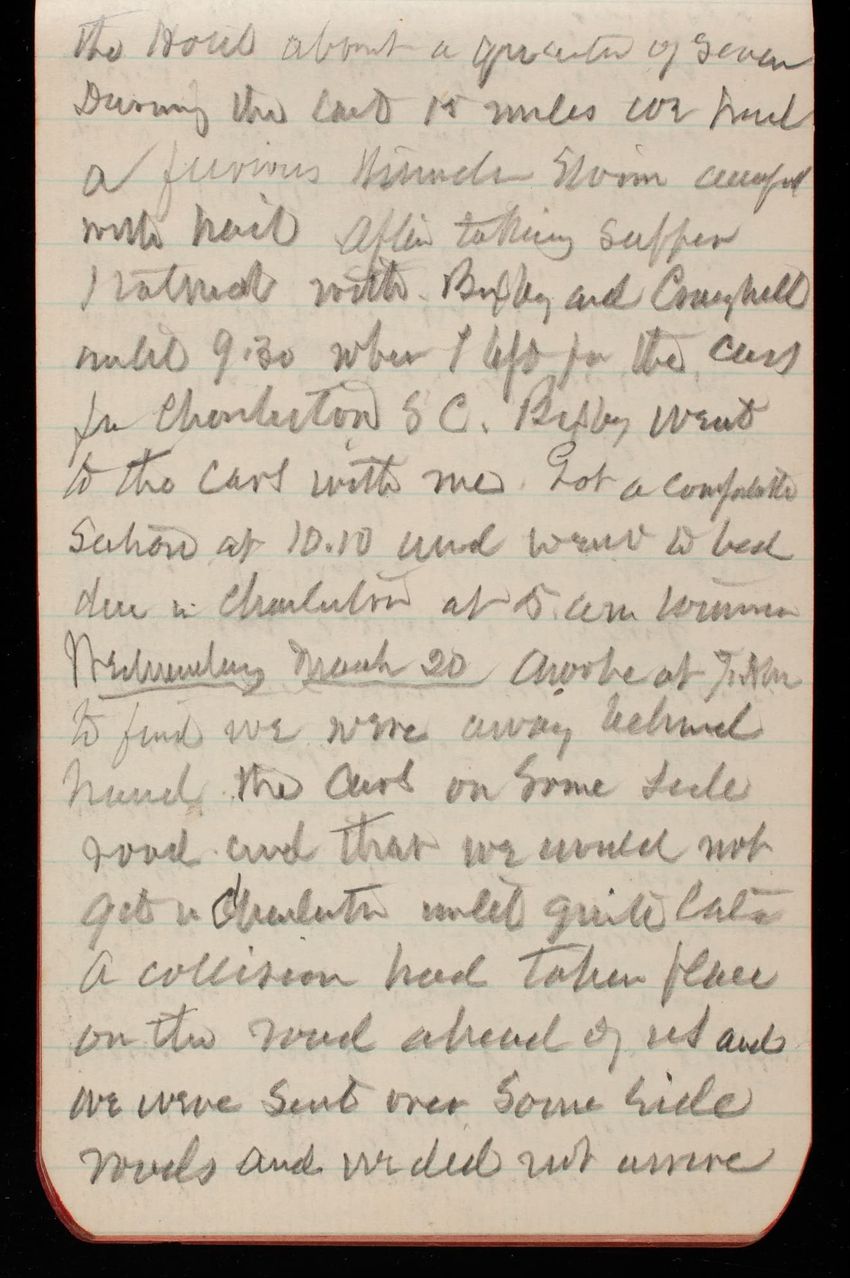 the Hotel about a quarter of Seven
During the last 15 miles we had
a furious Thunder Storm accompd
with hail After taking supper
I visited with Bixby and Craighill
until 9.30 when I left for the cars
for Charleston S C. Bixby went
to the cars with me. Got a comfortable
Section at 10.10 and went to bed
due in Charleston at 5 am tomorrow
Wednesday March 20 Awoke at 7. AM
to find we were away behind
hand the Cars on Some side
road and that we would not
get in Charleston until quite late
A collision had taken place
on the road ahead of us and
we were Sent over Some Side
roads and we did not arrive